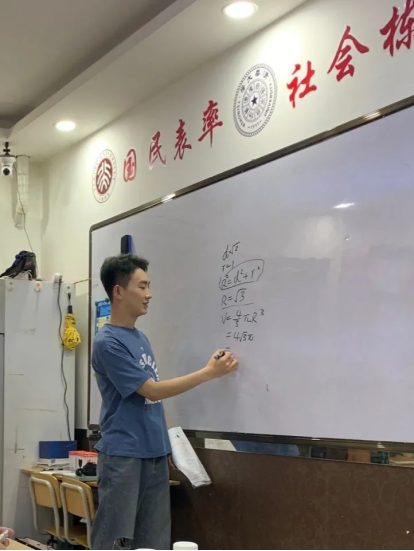 国民表率 社会栋
d=√2
r=1
R²=d²+r²
R=√3
V=4/3πR³
=4√3π
=